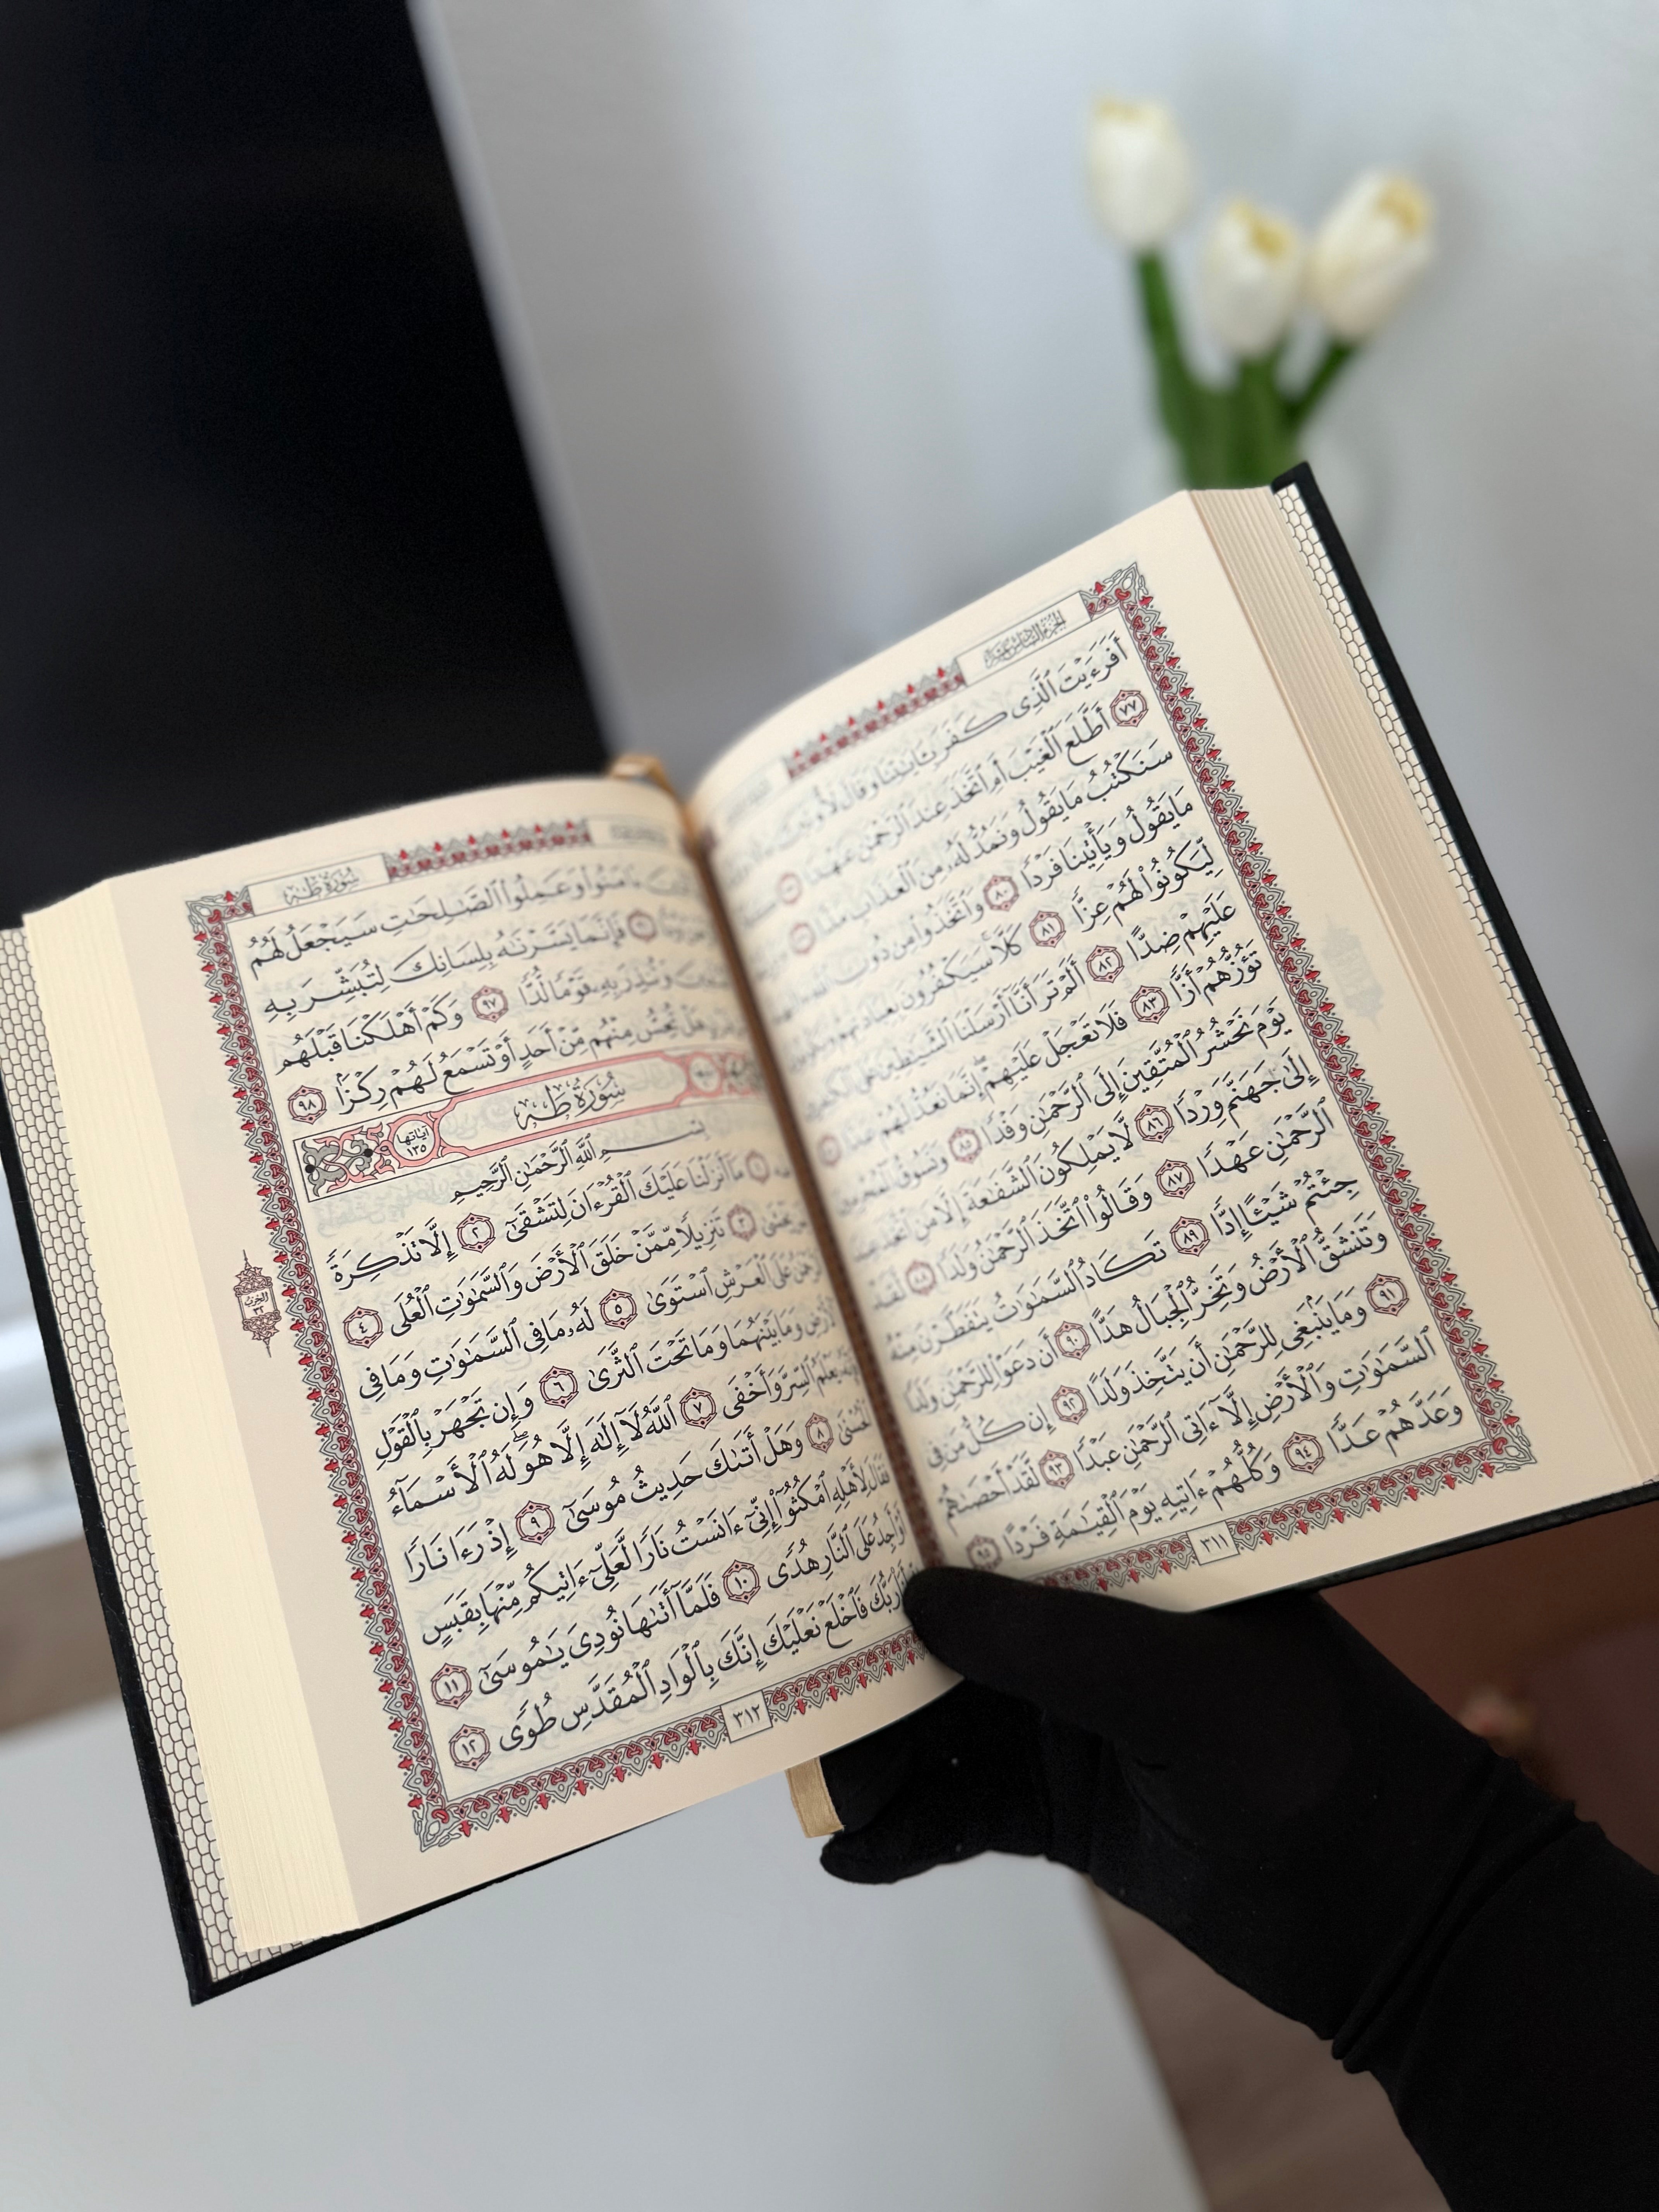 الجزء السادس عشر
أَفَرَءَيْتَ ٱلَّذِى كَفَرَ بِـَٔايَٰتِنَا وَقَالَ
٧٧ أَطَّلَعَ ٱلْغَيْبَ أَمِ ٱتَّخَذَ عِندَ ٱلرَّحْمَٰنِ عَهْدًا
سَنَكْتُبُ مَا يَقُولُ وَنَمُدُّ لَهُۥ مِنَ ٱلْعَذَابِ مَدًّا
مَا يَقُولُ وَيَأْتِينَا فَرْدًا ٨٠ وَٱتَّخَذُوا۟ مِن دُونِ
لِّيَكُونُوا۟ لَهُمْ عِزًّا ٨١ كَلَّا سَيَكْفُرُونَ بِعِبَادَتِهِمْ
عَلَيْهِمْ ضِدًّا ٨٢ أَلَمْ تَرَ أَنَّآ أَرْسَلْنَا ٱلشَّيَٰطِينَ عَلَى ٱلْكَٰفِرِينَ
تَؤُزُّهُمْ أَزًّا ٨٣ فَلَا تَعْجَلْ عَلَيْهِمْ إِنَّمَا نَعُدُّ لَهُمْ عَدًّا
يَوْمَ نَحْشُرُ ٱلْمُتَّقِينَ إِلَى ٱلرَّحْمَٰنِ وَفْدًا ٨٥ وَنَسُوقُ ٱلْمُجْرِمِينَ
إِلَىٰ جَهَنَّمَ وِرْدًا ٨٦ لَّا يَمْلِكُونَ ٱلشَّفَٰعَةَ إِلَّا مَنِ ٱتَّخَذَ عِندَ
ٱلرَّحْمَٰنِ عَهْدًا ٨٧ وَقَالُوا۟ ٱتَّخَذَ ٱلرَّحْمَٰنُ وَلَدًا ٨٨ لَّقَدْ
جِئْتُمْ شَيْـًٔا إِدًّا ٨٩ تَكَادُ ٱلسَّمَٰوَٰتُ يَتَفَطَّرْنَ مِنْهُ
وَتَنشَقُّ ٱلْأَرْضُ وَتَخِرُّ ٱلْجِبَالُ هَدًّا ٩٠ أَن دَعَوْا۟ لِلرَّحْمَٰنِ وَلَدًا
٩١ وَمَا يَنۢبَغِى لِلرَّحْمَٰنِ أَن يَتَّخِذَ وَلَدًا ٩٢ إِن كُلُّ مَن فِى
ٱلسَّمَٰوَٰتِ وَٱلْأَرْضِ إِلَّآ ءَاتِى ٱلرَّحْمَٰنِ عَبْدًا ٩٣ لَّقَدْ أَحْصَىٰهُمْ
وَعَدَّهُمْ عَدًّا ٩٤ وَكُلُّهُمْ ءَاتِيهِ يَوْمَ ٱلْقِيَٰمَةِ فَرْدًا ٩٥
٣١١
سُورَةُ طه
ءَامَنُوا۟ وَعَمِلُوا۟ ٱلصَّٰلِحَٰتِ سَيَجْعَلُ لَهُمُ
فَإِنَّمَا يَسَّرْنَٰهُ بِلِسَانِكَ لِتُبَشِّرَ بِهِ
وَتُنذِرَ بِهِۦ قَوْمًا لُّدًّا ٩٧ وَكَمْ أَهْلَكْنَا قَبْلَهُم
هَلْ تُحِسُّ مِنْهُم مِّنْ أَحَدٍ أَوْ تَسْمَعُ لَهُمْ رِكْزًۢا ٩٨
سُورَةُ طه آيَاتُهَا ١٣٥
بِسْمِ ٱللَّهِ ٱلرَّحْمَٰنِ ٱلرَّحِيمِ
١ مَآ أَنزَلْنَا عَلَيْكَ ٱلْقُرْءَانَ لِتَشْقَىٰٓ ٢ إِلَّا تَذْكِرَةً
يَخْشَىٰ ٣ تَنزِيلًا مِّمَّنْ خَلَقَ ٱلْأَرْضَ وَٱلسَّمَٰوَٰتِ ٱلْعُلَى ٤
عَلَى ٱلْعَرْشِ ٱسْتَوَىٰ ٥ لَهُۥ مَا فِى ٱلسَّمَٰوَٰتِ وَمَا فِى
ٱلْأَرْضِ وَمَا بَيْنَهُمَا وَمَا تَحْتَ ٱلثَّرَىٰ ٦ وَإِن تَجْهَرْ بِٱلْقَوْلِ
يَعْلَمُ ٱلسِّرَّ وَأَخْفَى ٧ ٱللَّهُ لَآ إِلَٰهَ إِلَّا هُوَ ۖ لَهُ ٱلْأَسْمَآءُ
ٱلْحُسْنَىٰ ٨ وَهَلْ أَتَىٰكَ حَدِيثُ مُوسَىٰٓ ٩ إِذْ رَءَا نَارًا
فَقَالَ لِأَهْلِهِ ٱمْكُثُوٓا۟ إِنِّىٓ ءَانَسْتُ نَارًا لَّعَلِّىٓ ءَاتِيكُم مِّنْهَا بِقَبَسٍ
أَوْ أَجِدُ عَلَى ٱلنَّارِ هُدًى ١٠ فَلَمَّآ أَتَىٰهَا نُودِىَ يَٰمُوسَىٰٓ ١١
رَبُّكَ فَٱخْلَعْ نَعْلَيْكَ إِنَّكَ بِٱلْوَادِ ٱلْمُقَدَّسِ طُوًى ١٢
٣١٢
الحزب ٣٢